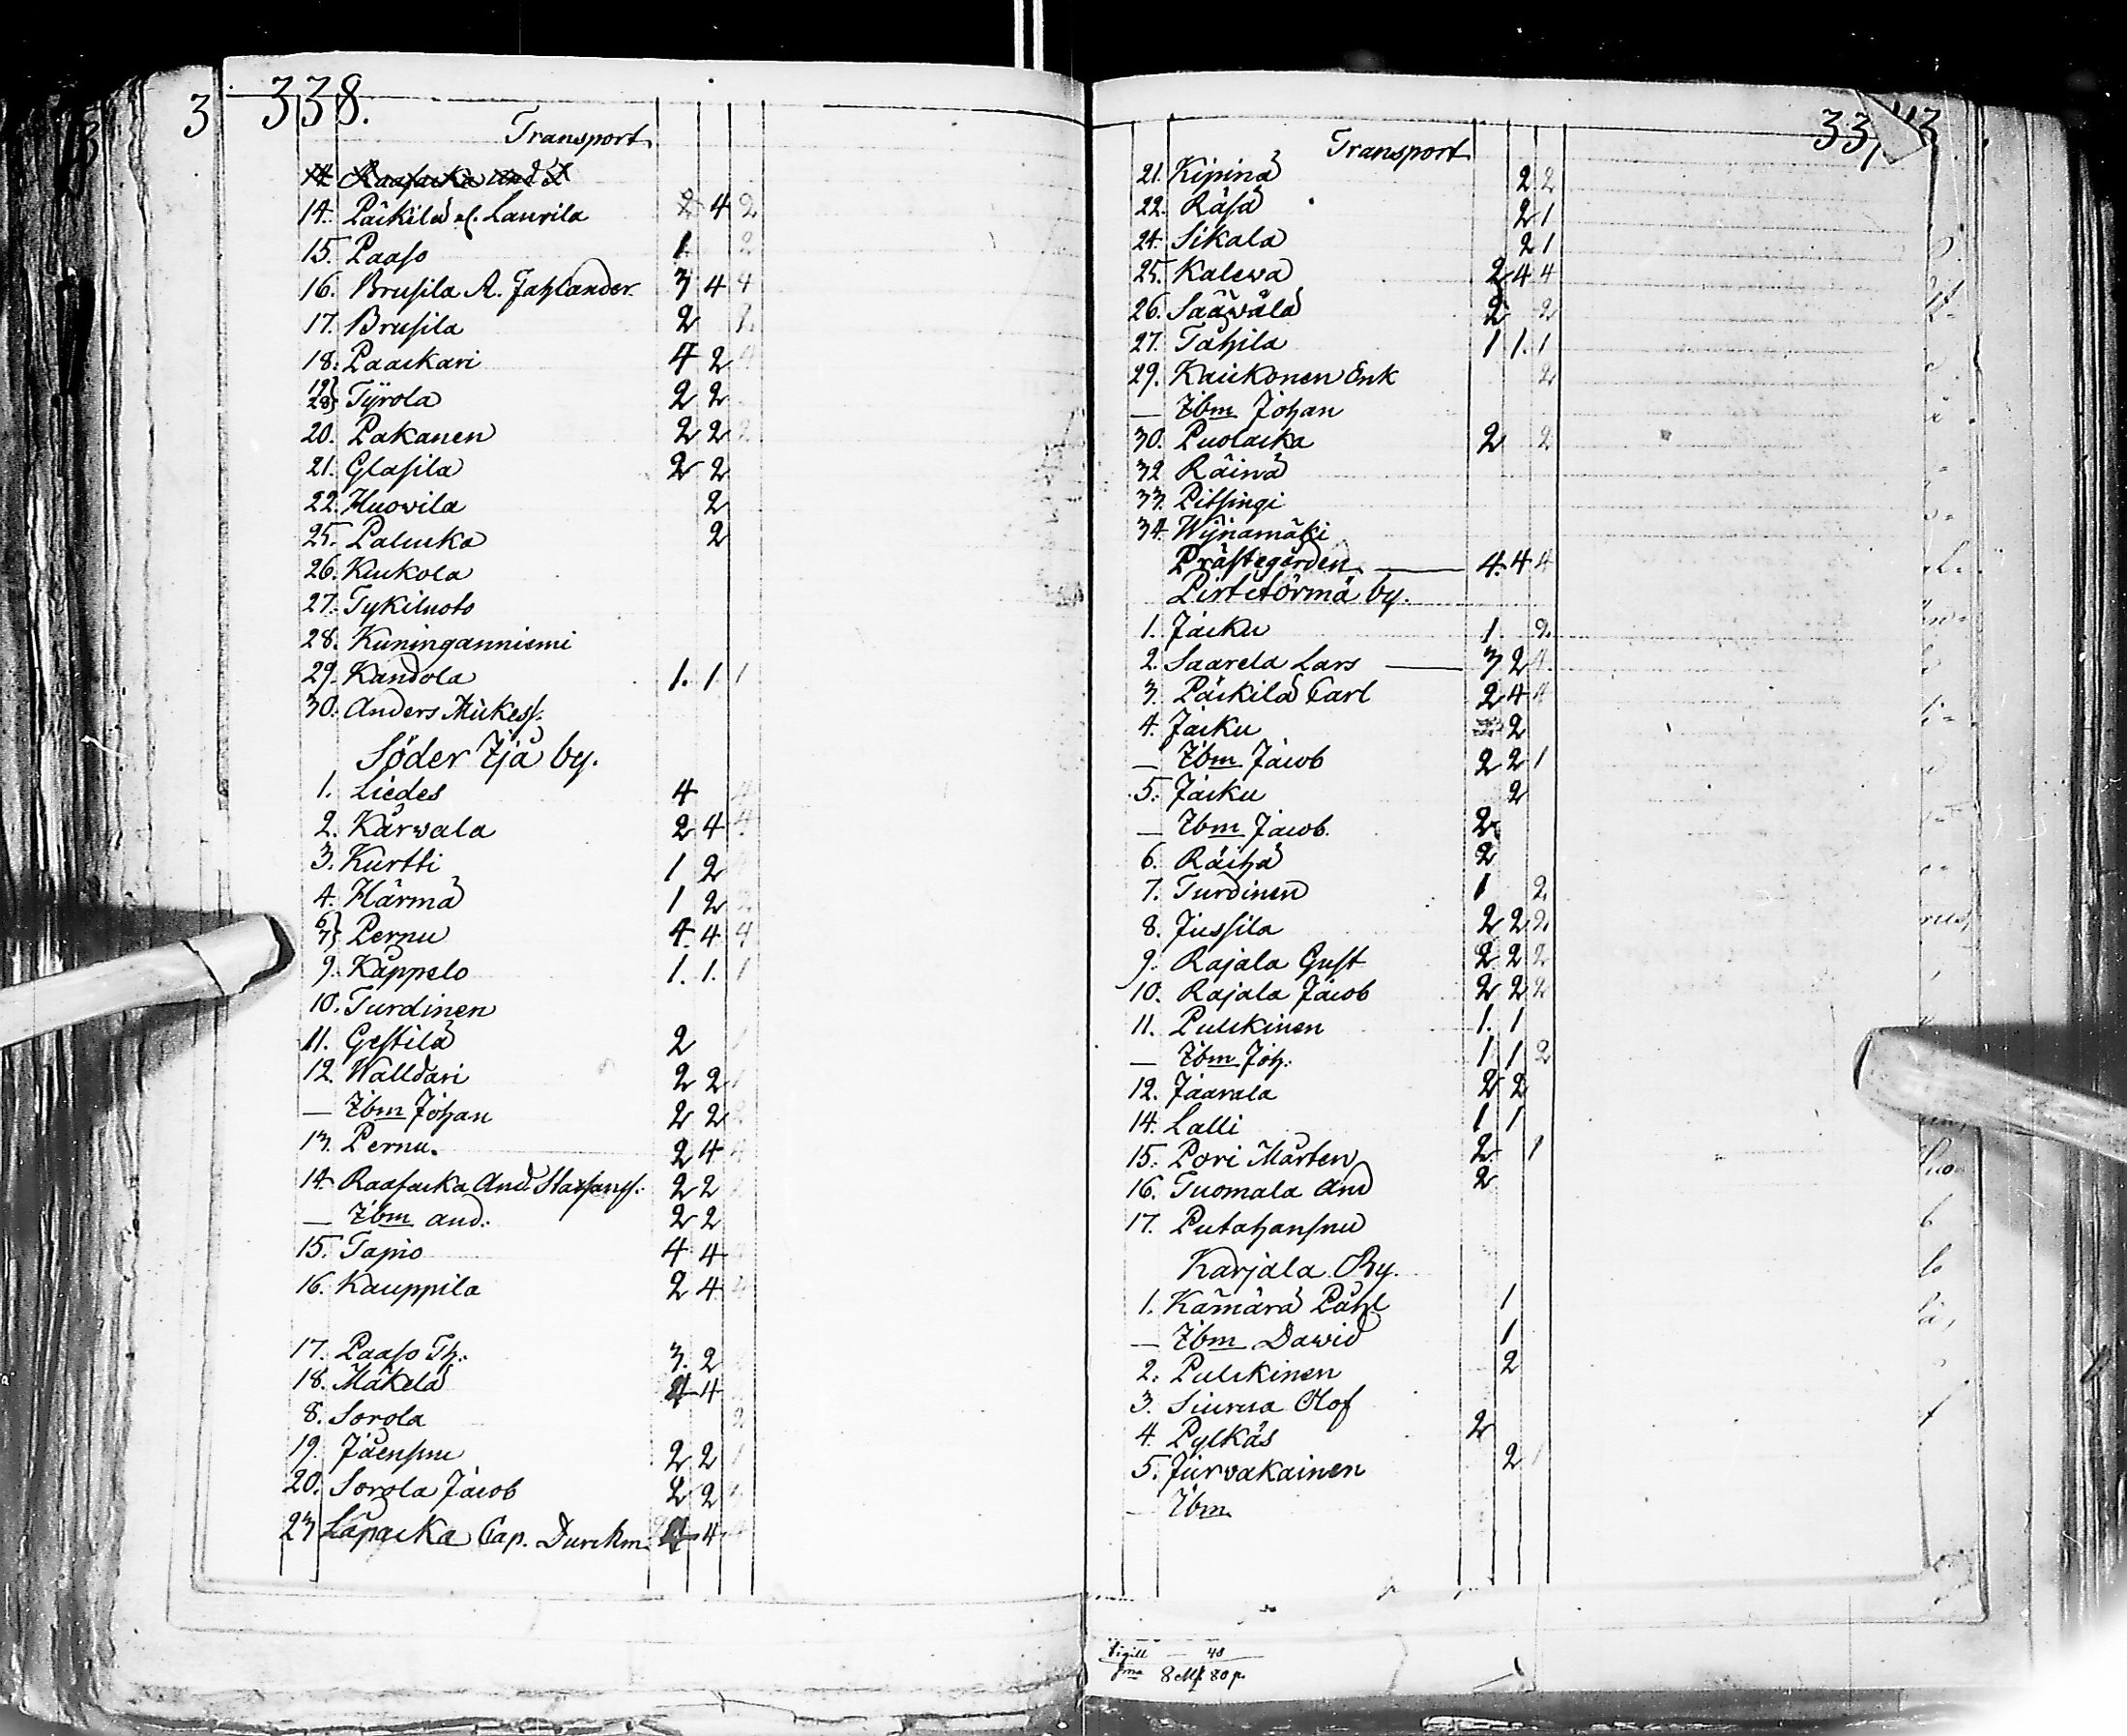 338.
Transport
14. Raasacka And. L
14. Päckilä el. Laurila 2 4 2
15. Paaso 1 2
16. Brusila A. Jahlander 3 4 4
17. Brusila 2 2.
18. Paackari 4 2 4
19 28} Tyrola 2 2
20. Pakanen 2 2 2
21. Glasila 2 2
22. Huowila 2
25. Palucka 2
26. Kuckola
27. Tykiluoto
28. Kuninganniemi
29. Kandola 1. 1. 1
30. Anders Mickess.
Söder Ijå by.
1. Liedes 4 4
2. Karwala 2 4 4
3. Kurtti 1 2
4. Härmä 1 2 2
6 7} Pernu 4. 4 4
9. Kåppelo 1. 1. 1
10. Turdinen
11. Gestilä 2 1
12. Walldari 2 2 1
— Ibm Johan 2 2 2
13. Pernu. 2 4 4
14 Raasacka And. Staffanss. 2 2
— Ibm And. 2 2
15. Tapio 4 4
16. Kauppila 2 4 4
17. Paaso Th. 3. 2
18. Mäkelä 4 4
8. Sorola 2
19. Jäensuu 2 2 1
20. Sorola Jacob 2 2
23 Lapacka Cap. Durchm. 4 4
Transport
21. Kipinä 2 2
22. Räsä 2 1
24. Sikala 2 1
25. Kalewa 2 4 4
26. Sääwälä 2 2
27. Tahila 1 1. 1
29. Kauckonen Enk 2
— Ibm Johan
30. Puolacka 2 2
32 Räinä
33. Pitsingi
34. Wijnamäki
Prästegården — 4. 4 4
Pirtitörmä by.
1. Jacku 1. 2.
2. Saarela Lars — 3 2 4.
3. Päckilä Carl 2 4 4
4. Jacku 2
— Ibm Jacob 2 2 1
5. Jacku 2
— Ibm Jacob. 2
6. Räihä 2
7. Turdinen 1 2
8. Jussila 2 2 2.
9. Rajala Gust 2 2 2
10. Rajala Jacob 2 2 2
11. Pulckinen 1. 1
— Ibm Joh. 1 1 2
12. Jaarala 2 2
14. Lalli 1 1
15. Pori Mårten 2 1
16. Tuomala And 2
17. Putahansuu
Karjala By.
1. Kämärä Påhl 1
— Ibm Dawid 1
2. Pulckinen 2
3. Siurua Olof
4. Pylkäs 2
5. Jurwakainen 2 1
— Ibm
Sigill — 40
8 Mk 80 p.